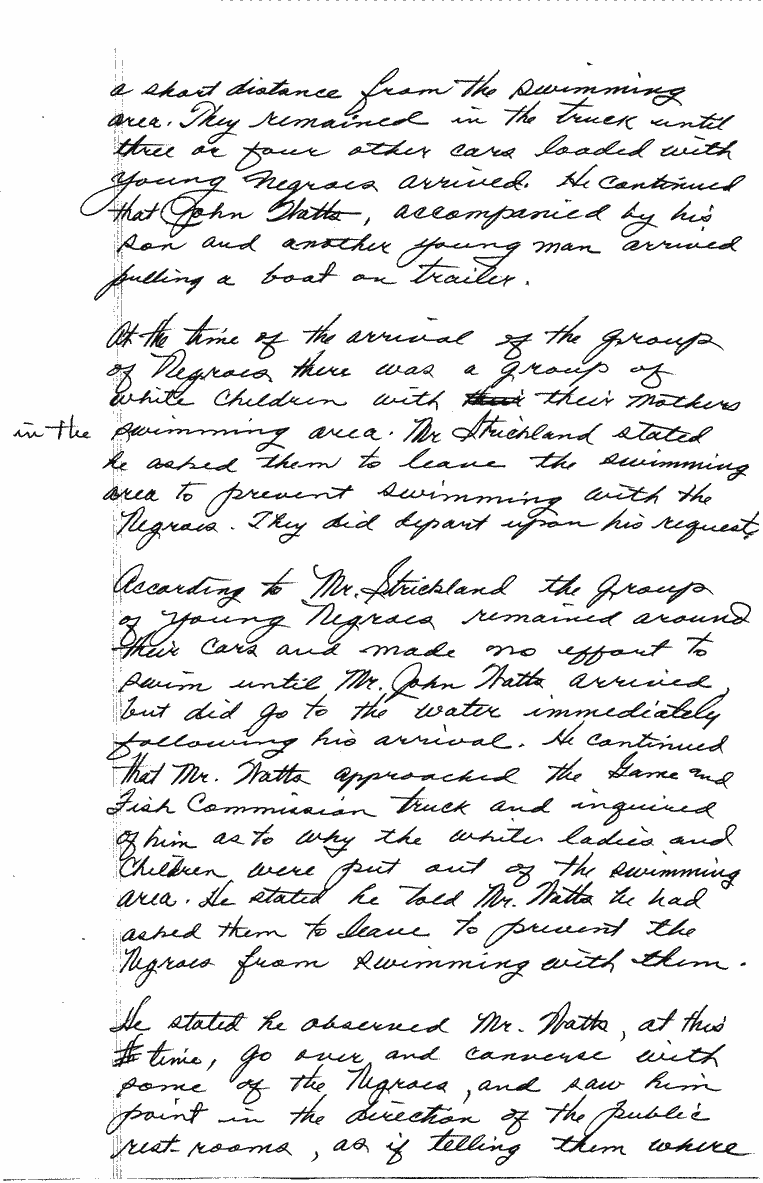 a short distance from the swimming
area. They remained in the truck until
three or four other cars loaded with
young Negroes arrived. He continued
that John Watts, accompanied by his
son and another young man arrived
pulling a boat on trailer.
At the time of the arrival of the group
of Negroes there was a group of
white children with their their mothers
in the swimming area. Mr Strickland stated
he asked them to leave the swimming
area to prevent swimming with the
Negroes. They did depart upon his request.
According to Mr. Strickland the group
of young Negroes remained around
their cars and made no effort to
swim until Mr. John Watts arrived,
but did go to the water immediately
following his arrival. He continued
that Mr. Watts approached the Game and
Fish Commission truck and inquired
of him as to why the white ladies and
children were put out of the swimming
area. He stated he told Mr. Watts he had
asked them to leave to prevent the
Negroes from swimming with them.
He stated he observed Mr. Watts, at this
time, go over and converse with
some of the Negroes, and saw him
point in the direction of the public
rest-rooms, as if telling them where